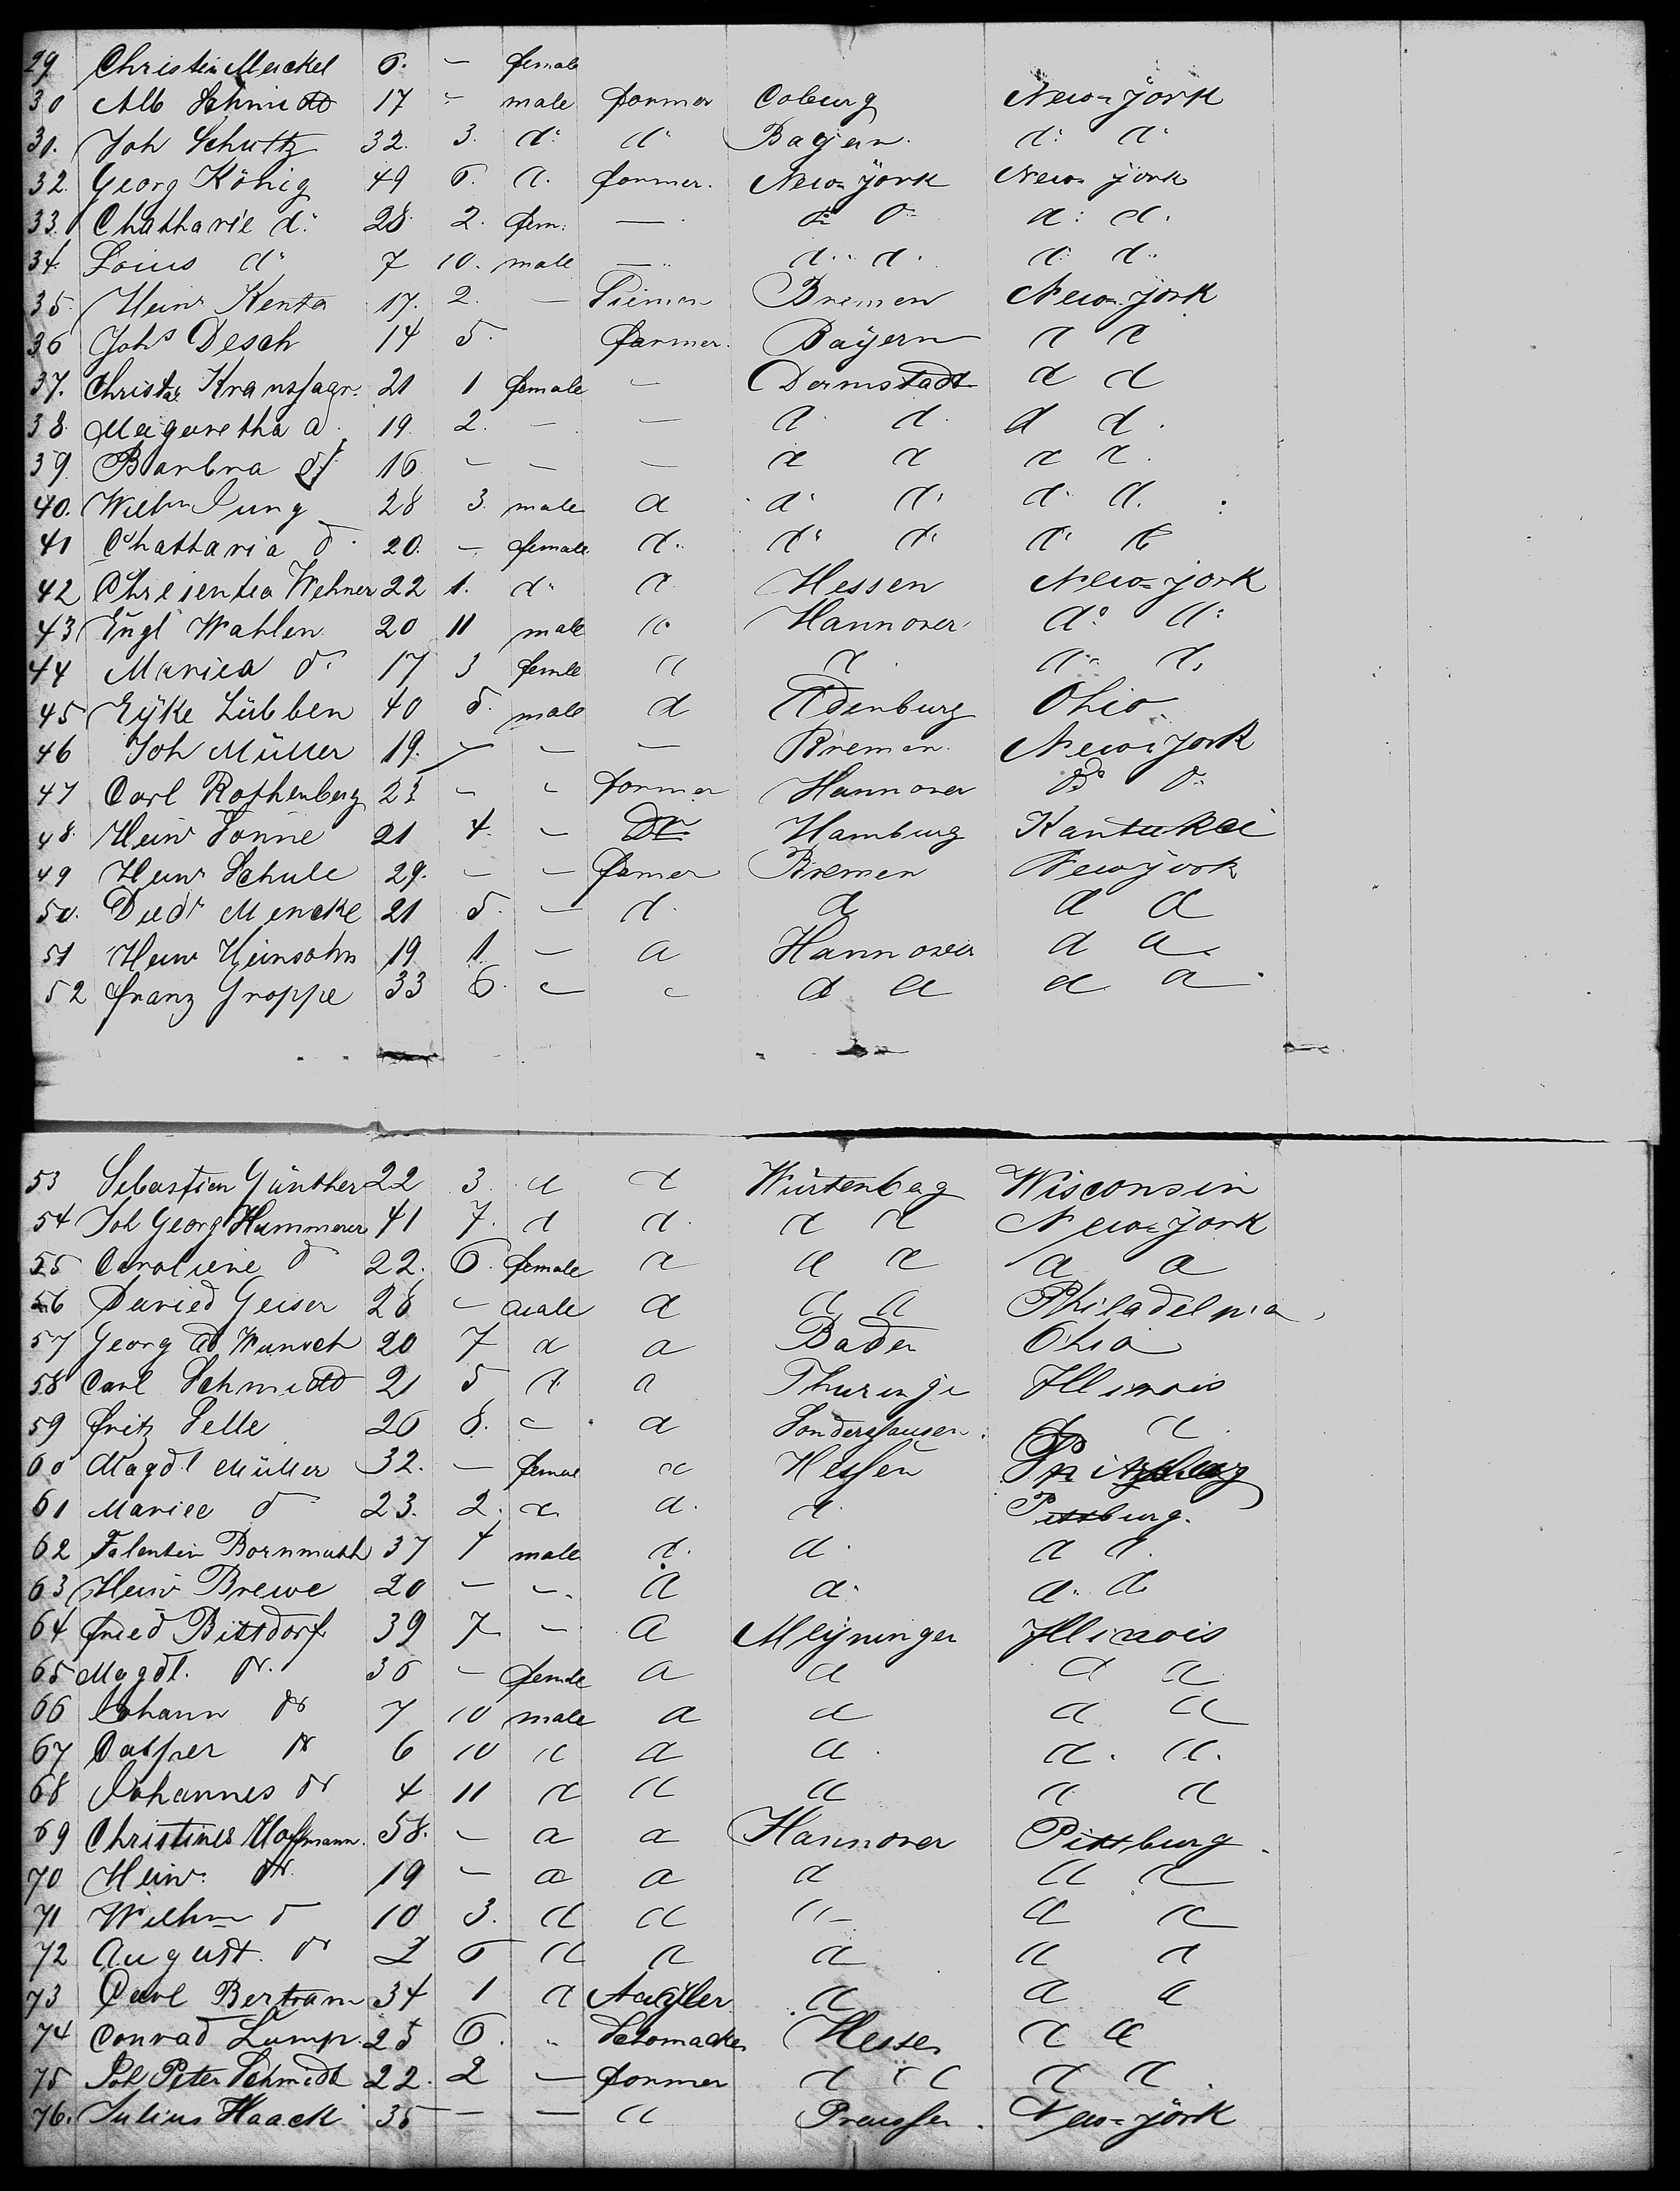 29 Christin Merckel 6. – female
30 Alb Schmidt 17 – male former Coburg New-York
31. Joh Schultz 32. 3. d: d: Bayern. d: d:
32. Georg König 49 6. d. former. New-York New-York
33. Chatharie d: 28 2. fem: – d: d: d: d.
34. Loius d: 7 10. male – d: d. d: d.
35. Heinr Kenta 17. 2. – Bremen New-York
36 Johs Desch 14 5. farmer. Bayern d d
37. Christne 21 1 female – Dormstadt d d
38. Magaretha d. 19. 2. – – d. d. d d.
39. Barbra d 16 – – – d d d d.
40. Wilhm Jung 28 3. male d d. d. d. d.
41 Chattaria d. 20. – female d. d. d. d. d
42 Chresentia Wehner 22 1. d. d Hessen New-York
43 Engl Wahlen 20 11 male d. Hannover d: d:
44 Mariea d. 17 3 femle d d d. d.
45 Eyke Lübben 40 5. male d Oldenburg Ohio.
46 Joh Müller 19. – – – Bremen. New-York
47 Carl Rothenberg 23 – – former Hannover d: d:
48. Heinr Tonne 21 4. – Dr Hamburg Kantukei
49 Heinr Schule 29. – – famer Bremen Newyork
50. Diedr Mencke 21 5. – d. d d d
51 Heinr Heinsohn 19 1. – d Hannover d d.
52 franz Groppe 33 6. – – d d d d
53 Sebastien Günther 22 3. d d Würtenberg Wisconsin
54 Joh Georg Hammerer 41 7. d d. d d New-York
55 Caroliene d 22. 6. female d d d d d
56 Daried Geiser 28 – male d d d Philadelpia.
57 Georg ad Wunsch 20 7 d d Baden Ohio
58 Carl Schmidt 21 5 d. d Thuringe Illinois
59 fritz Selle 26 8. – d Sondershausen. d d.
60 Magdl Müller 32. – femal d Hessen
61 Mariee d 23. 2. d d. d. Pittburg.
62 Falentin Bornmuth 37 1 male d. d. d d.
63 Heinr Brewe 20 – – d d. d. d
64 fried Bittdorf 39 7 – d Meyninger Illinois
65 Magdl. dr. 36 – femle d d d d
66 Johann dr 7 10 male d d d d
67 Casper dr 6 10 d d d. d. d.
68 Johannes dr 4 11 d d d d d
69 Christines Hoffmann. 58. – d d Hannover Pittburg.
70 Heinr. dr. 19 – d d d d d
71 Wilhm d 10 3. d d d d d
72 August. dr 2 6 d d d d d
73 Carl Bertram 34 1 d d d d
74 Conrad Lump. 25 6. – Schomacker Hessen d d
75 Joh Peter Schmidt 22. 2 – former d d d d.
76. Julius Haack 35 – – d Preussen. New-York